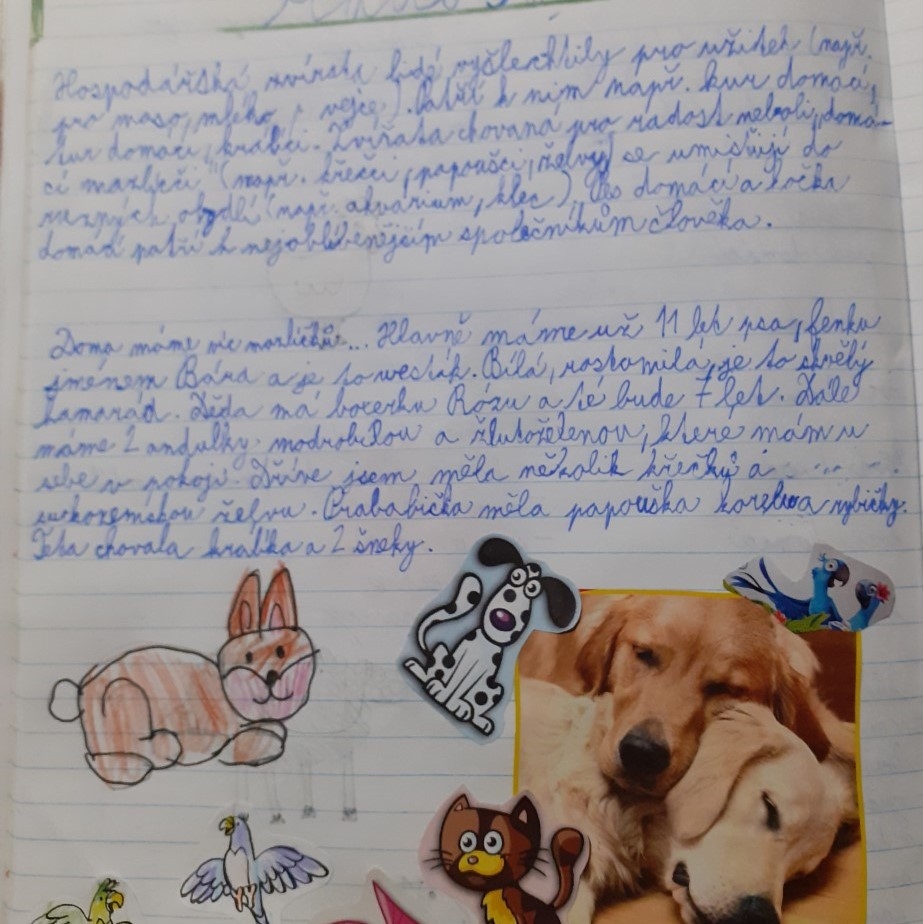 Hospodářská zvířata lidé vyšlechtily pro užitek (např.
pro maso, mléko, vejce). Patří k nim např. kur domácí,
tur domácí, králíci. Zvířata chovaná pro radost neboli „domá-
cí mazlíčci" (např. křečci, papoušci, želvy) se umisťují do
různých obydlí (např. akvárium, klec). Pes domácí a kočka
domácí patří k nejoblíbenějším společníkům člověka.
Doma máme víc mazlíčků... Hlavně máme už 11 let psa, fenku
jménem Bára a je to westík. Bílá, roztomilá, je to skvělý
kamarád. Děda má boxerku Rózu a té bude 7 let. Dále
máme 2 andulky modrobílou a žlutozelenou, které mám u
sebe v pokoji. Dříve jsem měla několik křečků a
suchozemskou želvu. Prababička měla papouška korelu a rybičky.
Teta chovala králíka a 2 šneky.